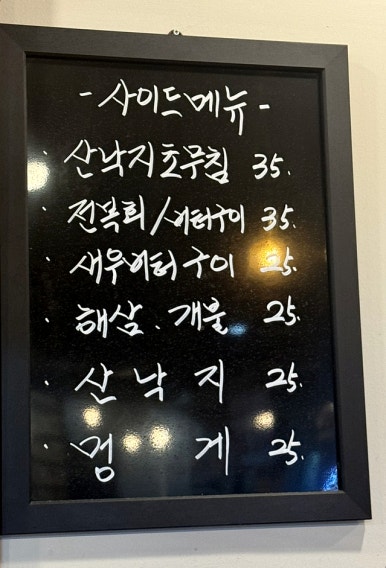 - 사이드메뉴 -
· 산낙지초무침 35.
· 전복회/버터구이 35.
· 새우버터구이 25.
· 해삼. 개불 25.
· 산낙지 25.
· 멍게 25.